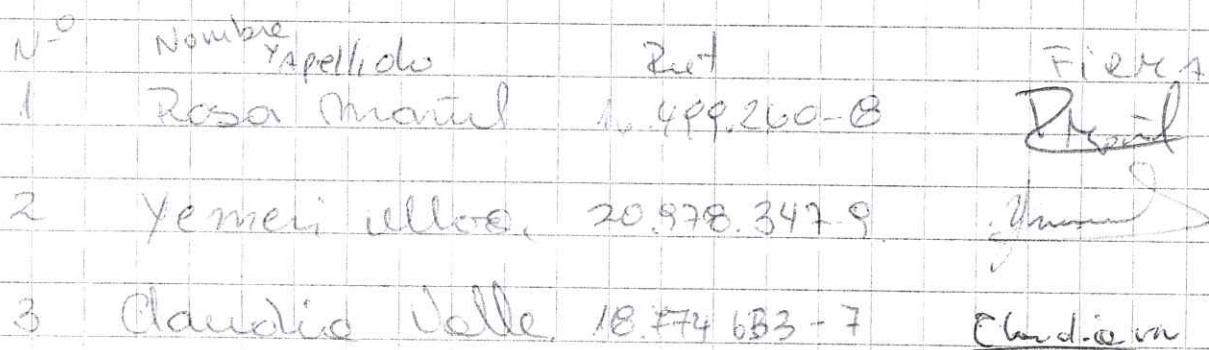 N-o Nombre y Apellido Rut Firma
1 Rosa Mañil
2 Yemeri Ulloa. 20.978.347-9
3 Claudia Valle 18.774 633-7 Claudia vn